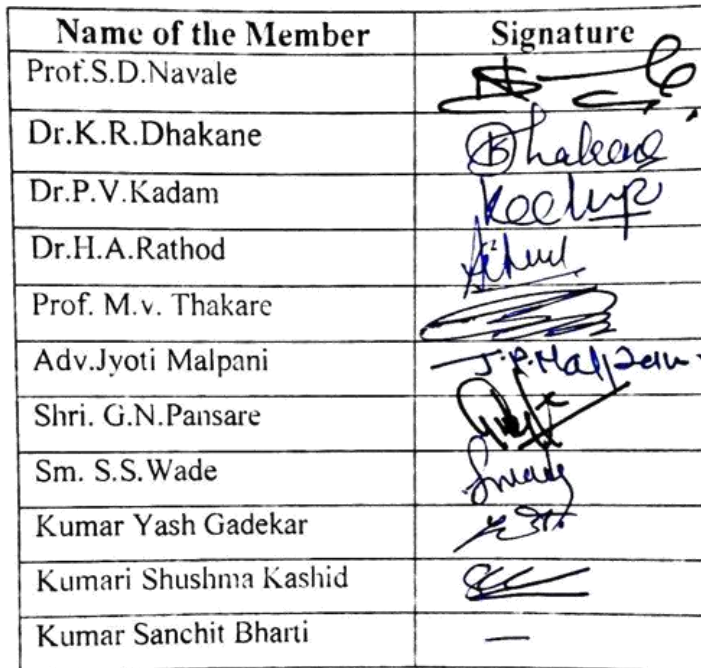 Name of the Member Signature
Prof.S.D.Navale
Dr.K.R.Dhakane Dhakane
Dr.P.V.Kadam
Dr.H.A.Rathod
Prof. M.v. Thakare
Adv.Jyoti Malpani J.P.Malpani
Shri. G.N.Pansare
Sm. S.S.Wade
Kumar Yash Gadekar
Kumari Shushma Kashid
Kumar Sanchit Bharti —